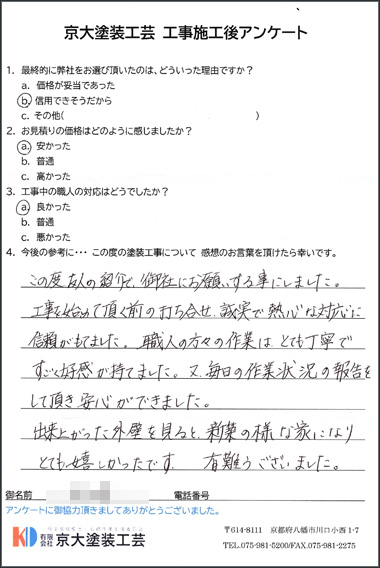 京大塗装工芸 工事施工後アンケート
1. 最終的に弊社をお選び頂いたのは、どういった理由ですか？
a. 価格が妥当であった
b. 信用できそうだから
c. その他( )
2. お見積りの価格はどのように感じましたか？
a. 安かった
b. 普通
c. 高かった
3. 工事中の職人の対応はどうでしたか？
a. 良かった
b. 普通
c. 悪かった
4. 今後の参考に・・・ この度の塗装工事について 感想のお言葉を頂けたら幸いです。
この度友人の紹介で、御社にお願いする事にしました。
工事を始めて頂く前の打ち合せ、誠実で熱心な対応に
信頼がもてました。職人の方々の作業は、とても丁寧で
すごく好感が持てました。又、毎日の作業状況の報告を
して頂き安心ができました。
出来上がった外壁を見ると、新築の様な家になり
とても嬉しかったです。 有難うございました。
御名前 電話番号
アンケートに御協力頂きましてありがとうございました。
有限会社 京大塗装工芸
〒614-8111 京都府八幡市川口小西 1-7
TEL.075-981-5200/FAX.075-981-2275